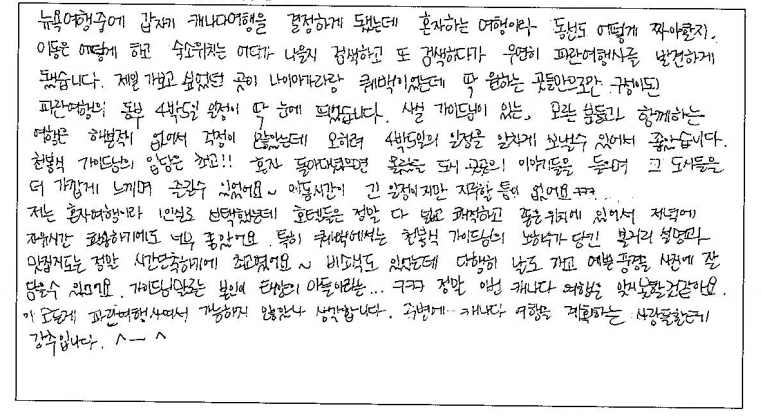 뉴욕여행중에 갑자기 캐나다여행을 결정하게 됐는데 혼자하는 여행이라 동선도 어떻게 짜야할지,
이동은 어떻게 하고 숙소위치는 어디가 나을지 검색하고 또 검색하다가 우연히 파란여행사를 발견하게
됐습니다. 제일 가보고 싶었던 곳이 나이아가라랑 퀘벡이었는데 딱 원하는 곳들만으로만 구성이된
파란여행의 동부 4박5일 일정이 딱 눈에 띄었습니다. 사실 가이드님이 있는, 모르는 분들과 함께하는
여행은 해본적이 없어서 걱정이 많았는데 오히려 4박5일의 일정을 알차게 보낼수 있어서 좋았습니다.
천봉석 가이드님의 입담은 최고!! 혼자 돌아다녔으면 몰랐을 도시 곳곳의 이야기들을 들으며 그 도시들을
더 가깝게 느끼며 즐길수 있었어요~ 이동시간이 긴 일정이지만 지루할 틈이 없어요 ㅋㅋ
저는 혼자여행이라 1인실로 선택했는데 호텔들은 정말 다 넓고 쾌적하고 좋은 위치에 있어서 저녁에
자유시간 활용하기에도 너무 좋았어요. 특히 퀘벡에서는 천봉석 가이드님의 노하우가 담긴 볼거리 설명과
맛집지도는 정말 시간단축하기에 최고였어요~ 비소식도 있었는데 다행히 날도 개고 예쁜 풍경을 사진에 잘
담을수 있었어요. 가이드님말로는 본인이 태양의 아들이라는... ㅋㅋㅋ 정말 이번 캐나다 여행을 잊지못할것같아요.
이 모든게 파란여행사여서 가능하지 않았나 생각합니다. 주변에 캐나다 여행을 계획하는 사람들한테
강추입니다. ^-^